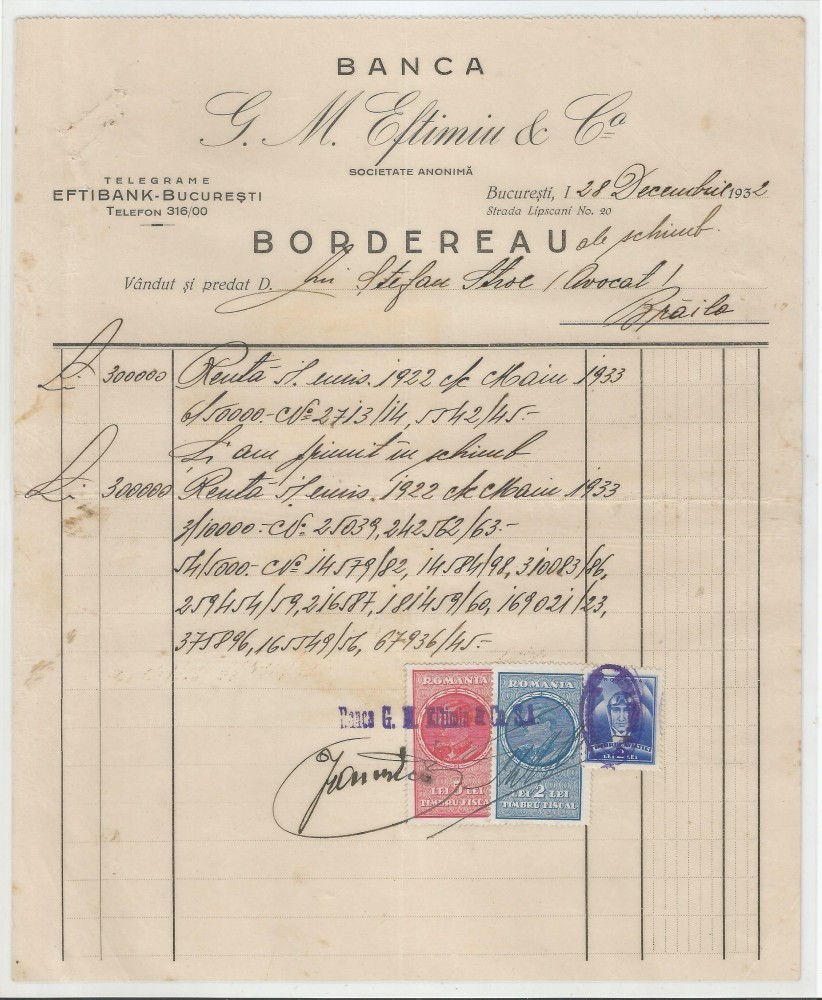 BANCA
G. M. Eftimiu & Cª
SOCIETATE ANONIMĂ
TELEGRAME
EFTIBANK-BUCUREȘTI
TELEFON 316/00
București, 128 Decembrie 1932
Strada Lipscani No. 20
BORDEREAU de schimb.
Vândut și predat D. lui Ștefan Stroe (Avocat)
Brăila
Li 300000 Rentă 5% emis. 1922 c/c Maiu 1933
6/50000.- No 2713/14, 5542/45.-
Și am primit în schimb
Li 300000 Rentă 5% emis. 1922 c/c Maiu 1933
3/10000.- No 25039, 242562/63.-
54/5000.- No 14579/82, 14584/98, 310083/86,
259454/59, 216587, 181459/60, 169021/23,
375896, 165549/56, 67936/45.-
ROMANIA
ROMANIA
Banca G. M. Eftimiu & Co. S.A.
LEI 5 LEI
TIMBRU FISCAL
LEI 2 LEI
TIMBRU FISCAL
2
LEI LEI